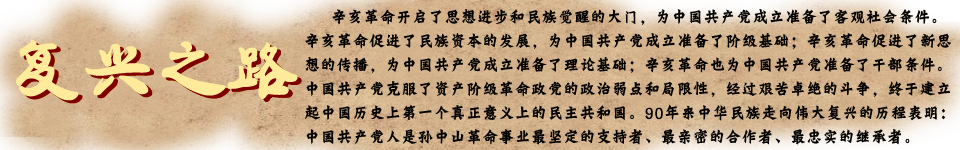 复兴之路
辛亥革命开启了思想进步和民族觉醒的大门，为中国共产党成立准备了客观社会条件。
辛亥革命促进了民族资本的发展，为中国共产党成立准备了阶级基础；辛亥革命促进了新思
想的传播，为中国共产党成立准备了理论基础；辛亥革命也为中国共产党准备了干部条件。
中国共产党克服了资产阶级革命政党的政治弱点和局限性，经过艰苦卓绝的斗争，终于建立
起中国历史上第一个真正意义上的民主共和国。90年来中华民族走向伟大复兴的历程表明：
中国共产党人是孙中山革命事业最坚定的支持者、最亲密的合作者、最忠实的继承者。